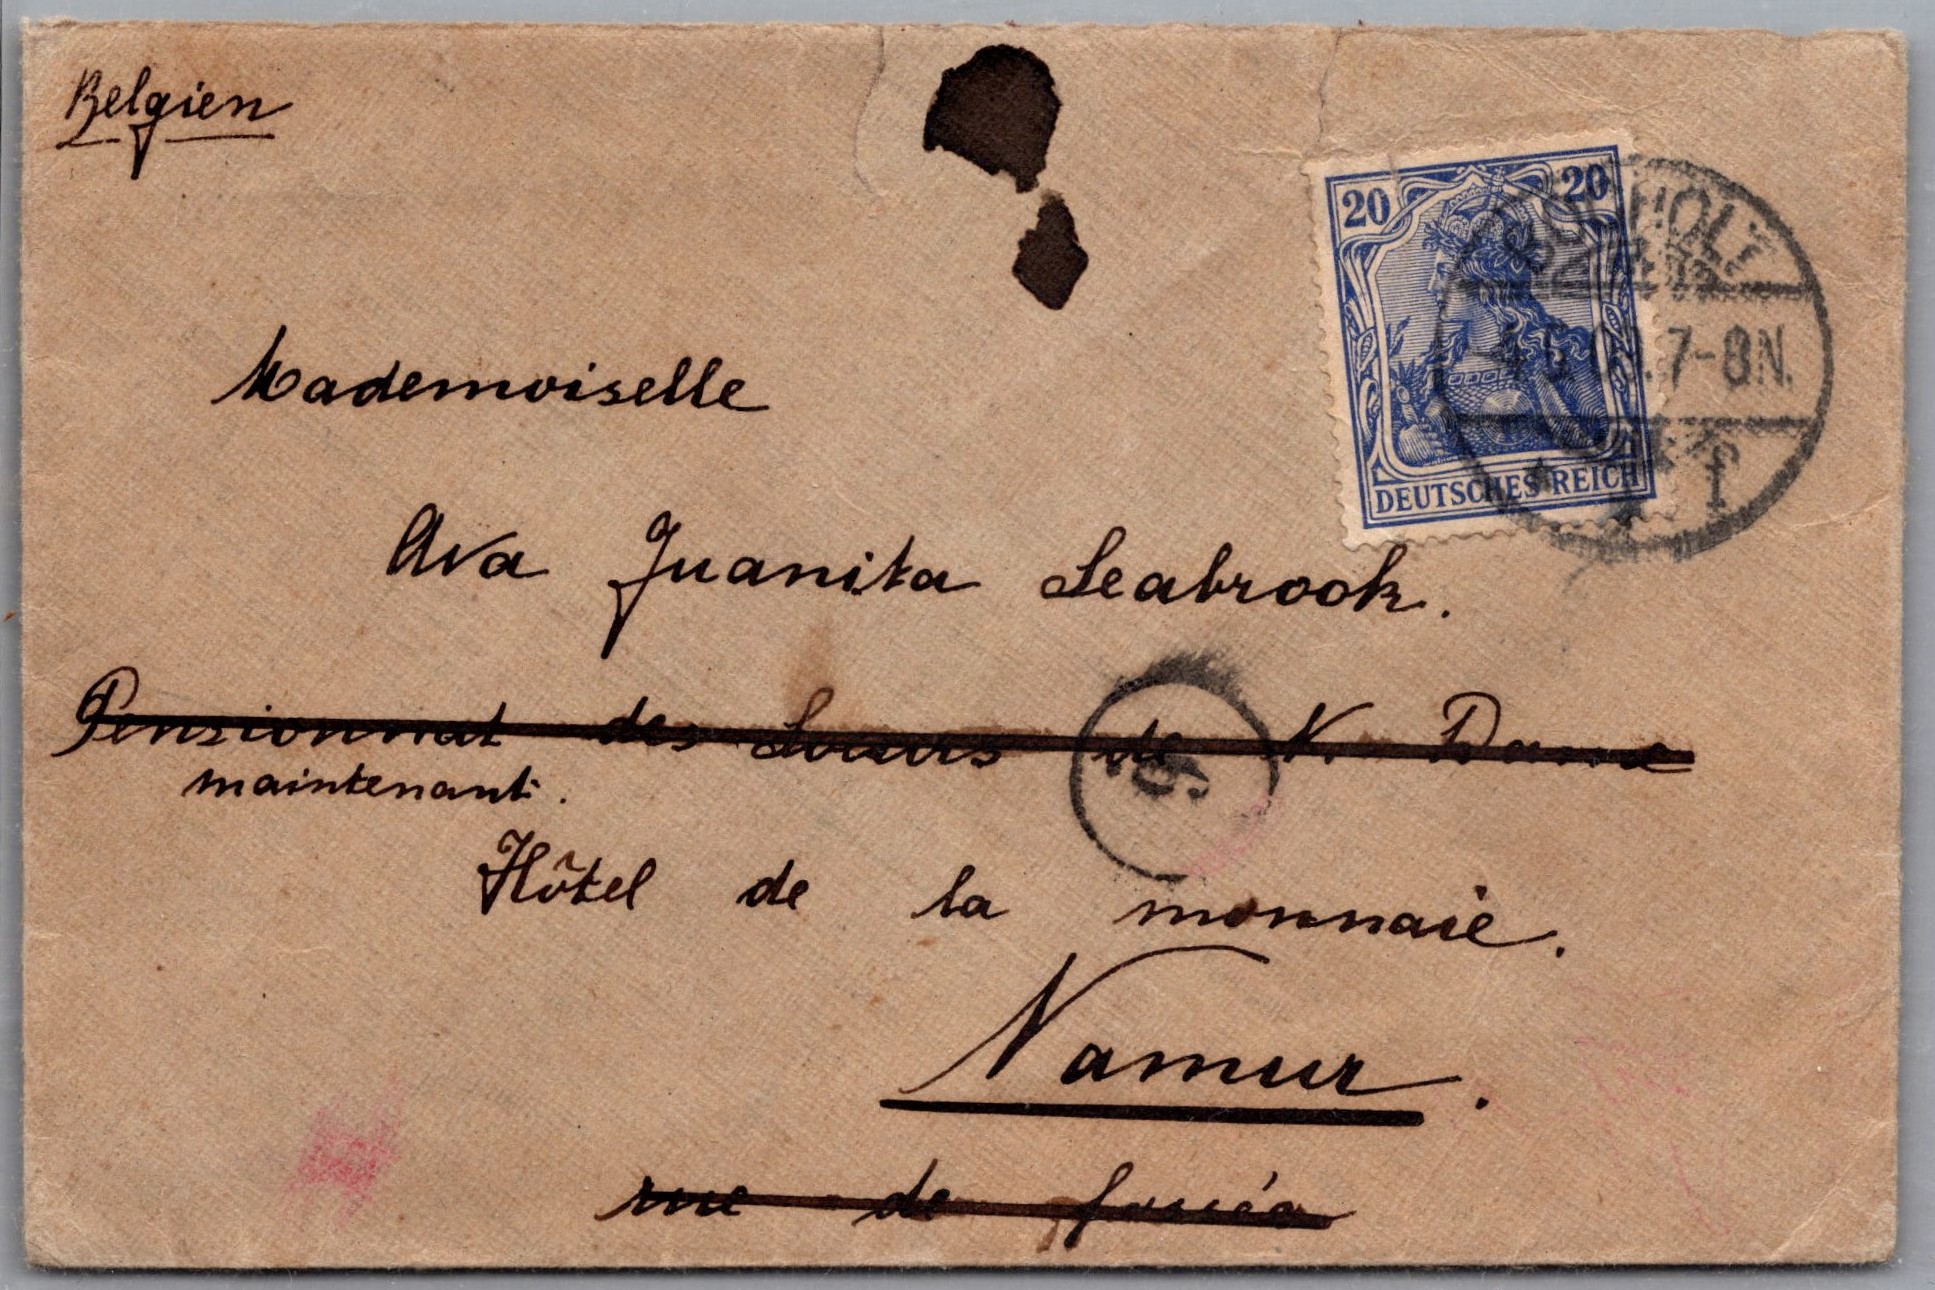 Belgien
20 20
DEUTSCHES REICH
7-8N.
f
Mademoiselle
Ava Juanita Seabrook.
Pensionnat des Soeurs de N. Dame
maintenant.
Hôtel de la monnaie.
Namur.
rue de